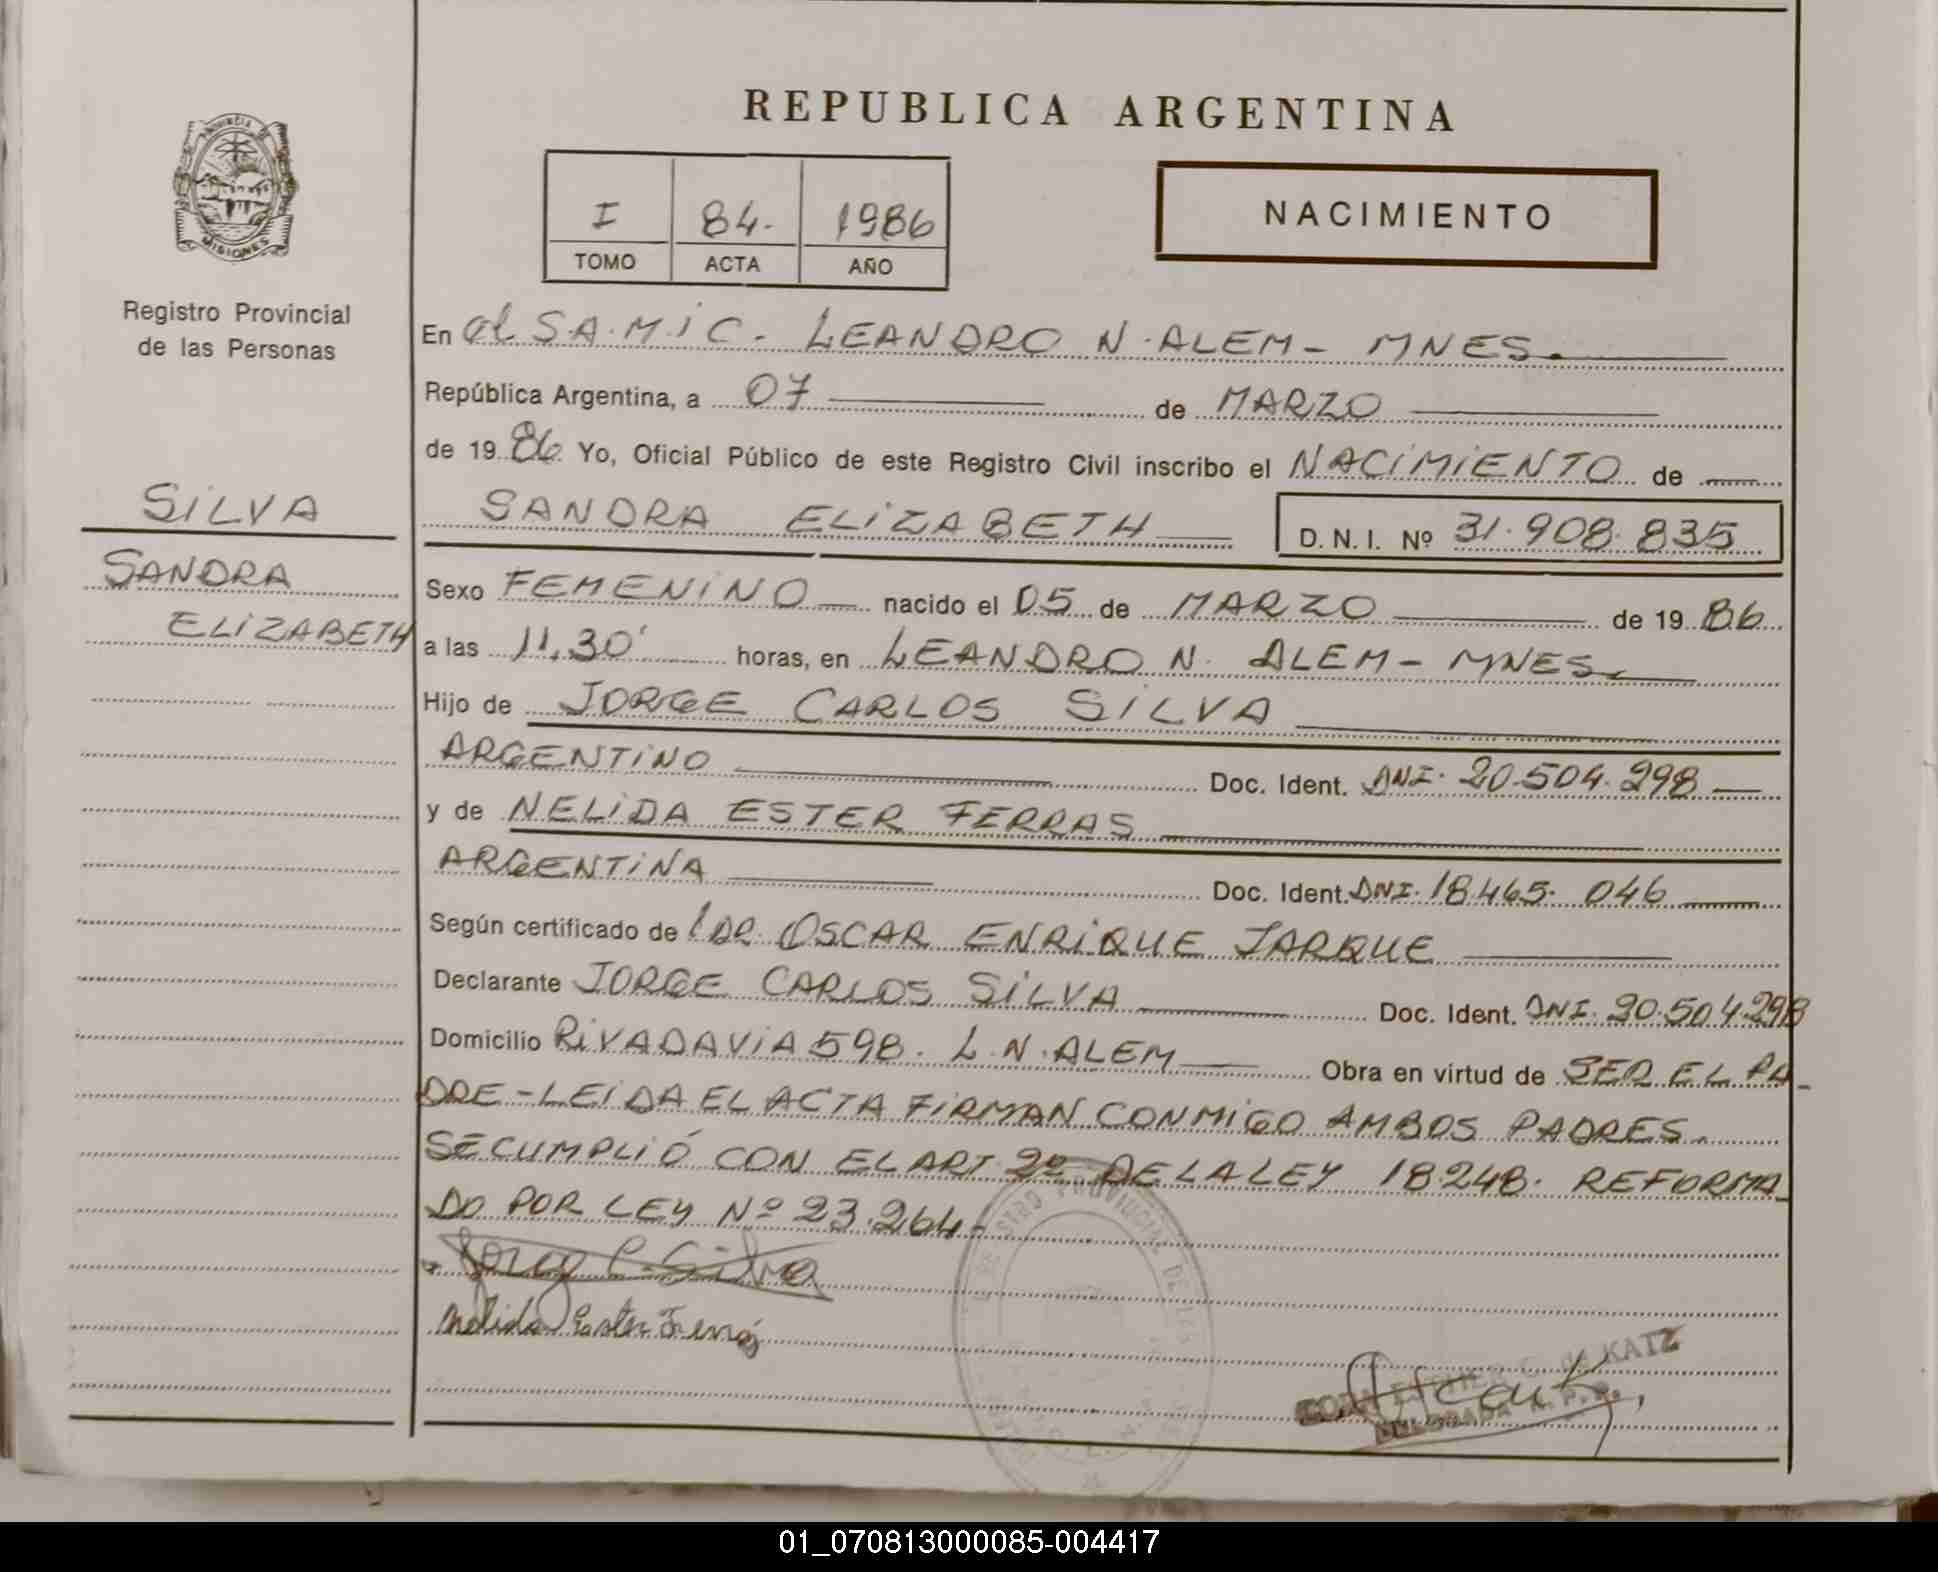 REPUBLICA ARGENTINA
PROVINCIA DE
MISIONES
Registro Provincial
de las Personas
I 84. 1986
TOMO ACTA AÑO
NACIMIENTO
En el S.A.M.I.C. LEANDRO N. ALEM - MNES.
República Argentina, a 07 de MARZO
de 1986 Yo, Oficial Público de este Registro Civil inscribo el NACIMIENTO de
SILVA
SANDRA
ELIZABETH
SANDRA ELIZABETH D.N.I. Nº 31.908.835
Sexo FEMENINO nacido el 05 de MARZO de 1986
a las 11,30' horas, en LEANDRO N. ALEM - MNES.
Hijo de JORGE CARLOS SILVA
ARGENTINO Doc. Ident. DNI. 20.504.298
y de NELIDA ESTER FERRAS
ARGENTINA Doc. Ident. DNI. 18.465.046
Según certificado de DR. OSCAR ENRIQUE JARQUE
Declarante JORGE CARLOS SILVA Doc. Ident. DNI. 20.504.298
Domicilio RIVADAVIA 598. L.N. ALEM Obra en virtud de SER EL PA-
DRE - LEIDA EL ACTA FIRMAN CONMIGO AMBOS PADRES.
SE CUMPLIÓ CON EL ART. 2º DE LA LEY 18.248. REFORMA-
DO POR LEY Nº 23.264-
Jorge C. Silva
Nelida Ester Ferrás
REGISTRO PROVINCIAL DE LAS
de KATZ
DELEGADA R.P.P.
01_070813000085-004417